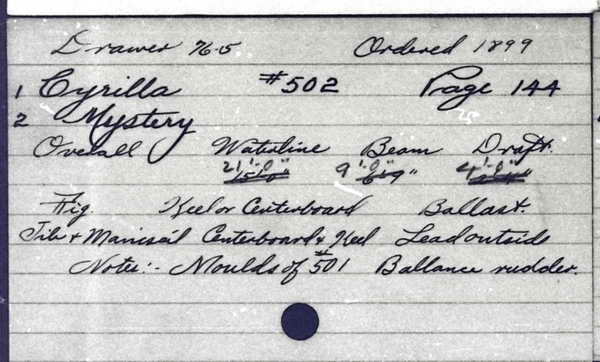 Drawer 76-5 Ordered 1899
1 Cyrilla #502 Page 144
2 Mystery
Overall Waterline Beam Draft.
21'-0" 9'-0" 4'-0"
Fig. Keel or Centerboard Ballast.
Jib + Mainsail Centerboard + Keel Lead outside
Notes:- Moulds of #501 Ballance rudder.